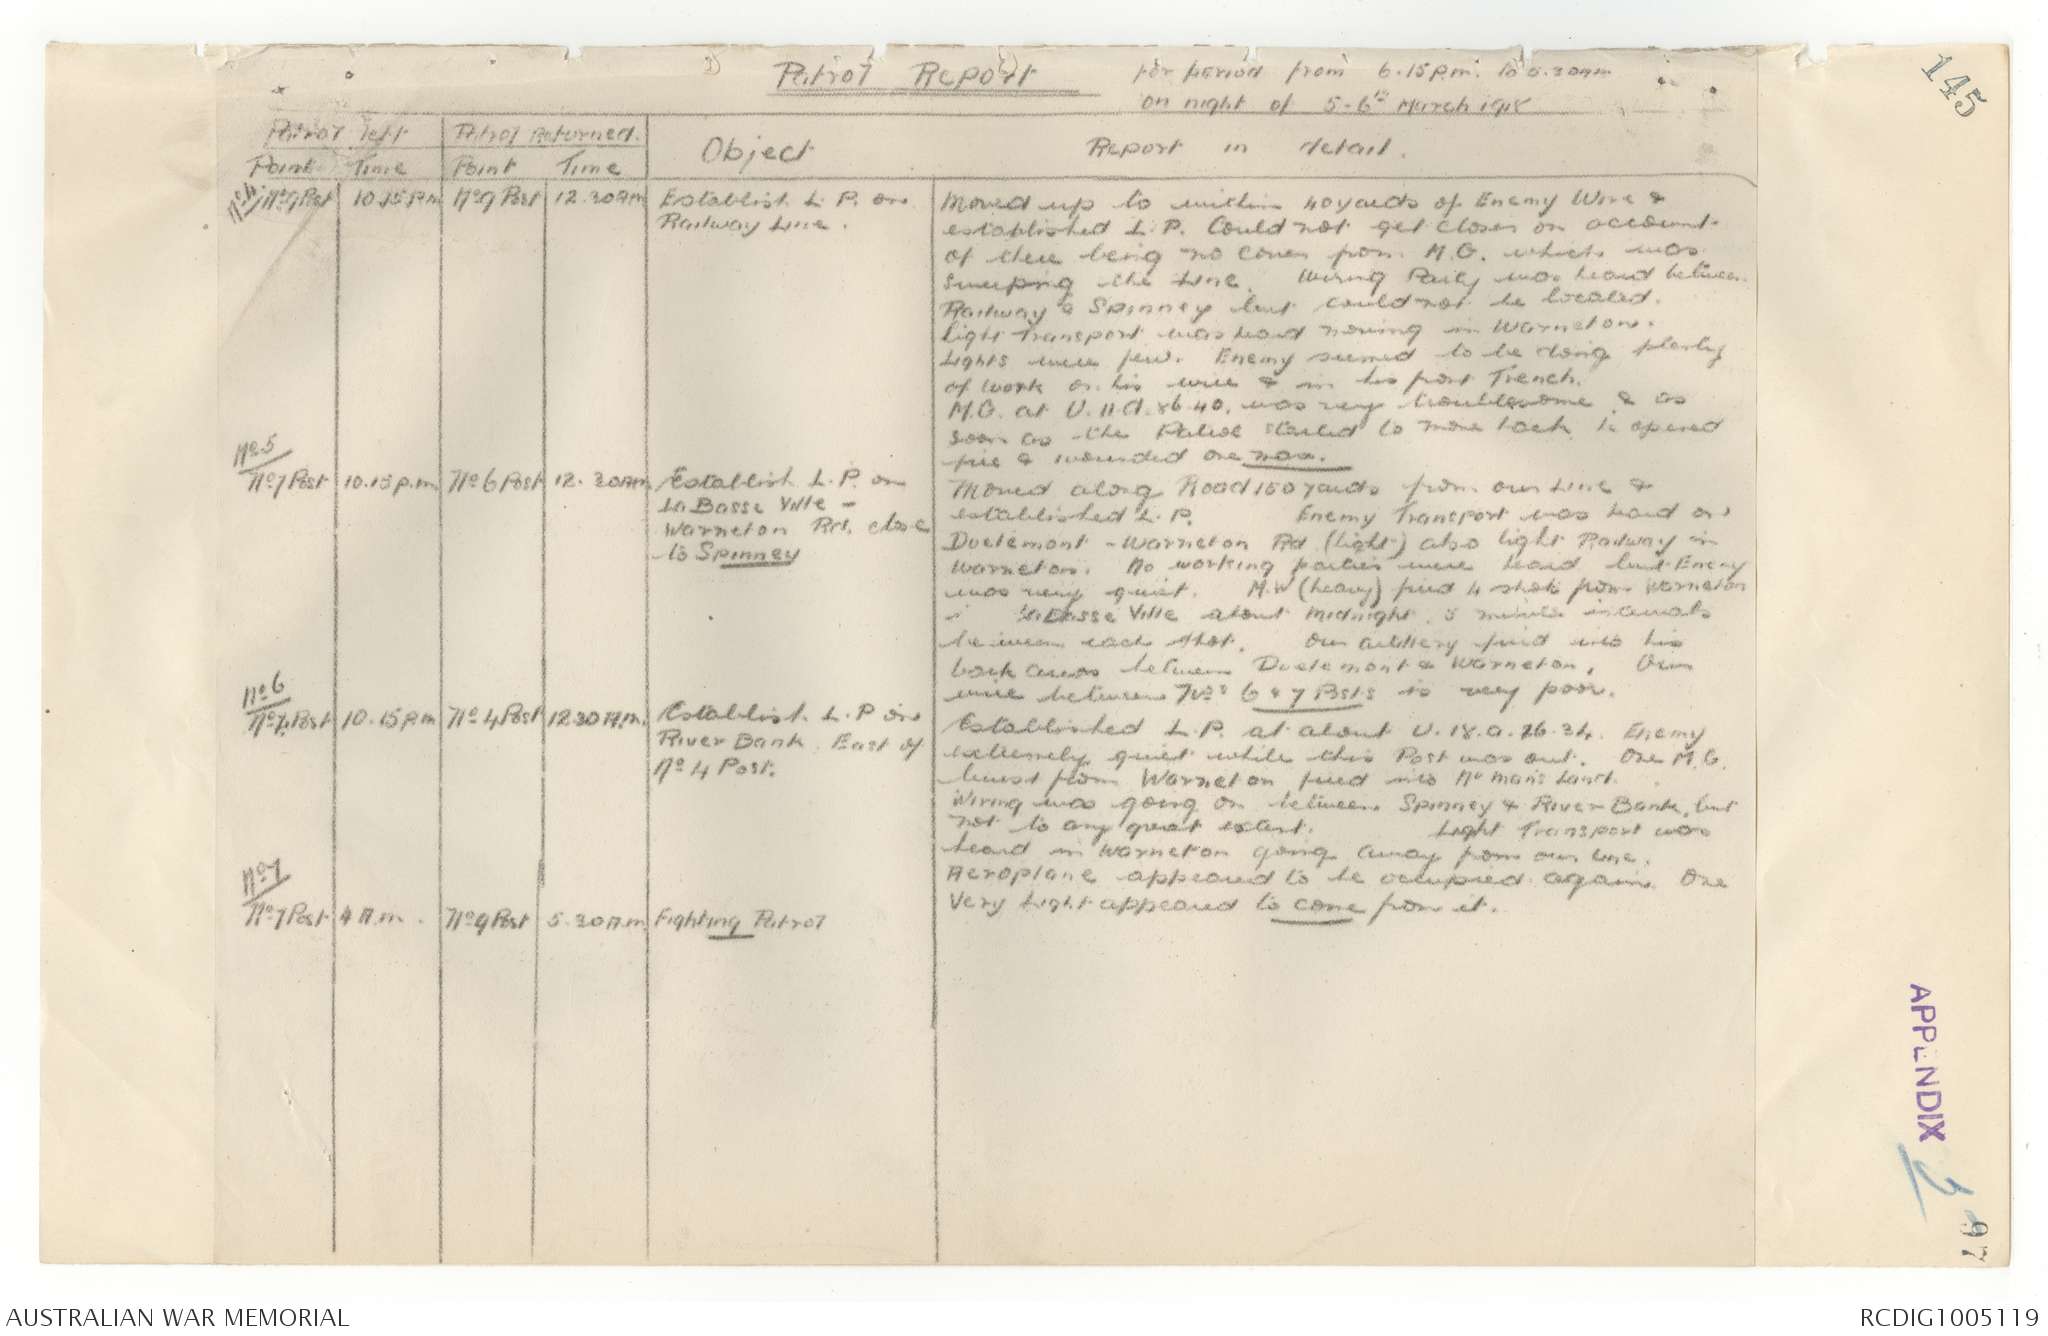 145
Patrol Report
for period from 6.15 p.m. to 5.30 am
on night of 5-6th March 1918
Patrol left
Patrol Returned.
Object
Report in detail.
Point Time Point Time
No 4.
No 9 Post 10.15 p m No 9 Post 12.30 AM
Establish L. P. on
Railway Line.
Moved up to within 40 yards of Enemy Wire &
established L.P. Could not get closer on account
of there being no cover from M.G. which was
sweeping the Line. Wiring Party was heard between
Railway & Spinney but could not be located.
Light Transport was heard moving in Warneton.
Lights were few. Enemy seemed to be doing plenty
of work on his wire & in his front Trench.
M.G. at U.11.d.86.40. was very troublesome & as
soon as the Patrol started to move back, it opened
fire & wounded one man.
No 5
No 7 Post 10.15 p.m No 6 Post 12.30 AM
Establish L.P. on
La Basse Ville -
Warneton Rd. close
to Spinney
Moved along Road 150 yards from our Line &
established L.P. Enemy Transport was heard on
Duelemont - Warneton Rd (light) also light Railway in
Warneton. No working parties were heard but Enemy
was very quiet. M.W (heavy) fired 4 shots from Warneton
La Basse Ville about midnight. 5 minutes intervals
between each shot. Our artillery fired into his
back areas between Duelemont & Warneton. Our
wire between Nos 6 & 7 Posts is very poor.
No 6
No 4 Post 10.15 p m No 4 Post 12.30 A.m.
Establish L.P on
River Bank East of
No 4 Post.
Established L.P. at about U.18.a.26.34. Enemy
extremely quiet while this Post was out. One M.G.
burst from Warneton fired into No man's Land.
Wiring was going on between Spinney & River Bank, but
not to any great extent. Light Transport was
heard in Warneton going away from our line.
Aeroplane appeared to be occupied again. One
Very Light appeared to come from it.
No 7
No 7 Post 4 A.m. No 9 Post 5.30 A.m
Fighting Patrol
APPENDIX 3
97
AUSTRALIAN WAR MEMORIAL
RCDIG1005119